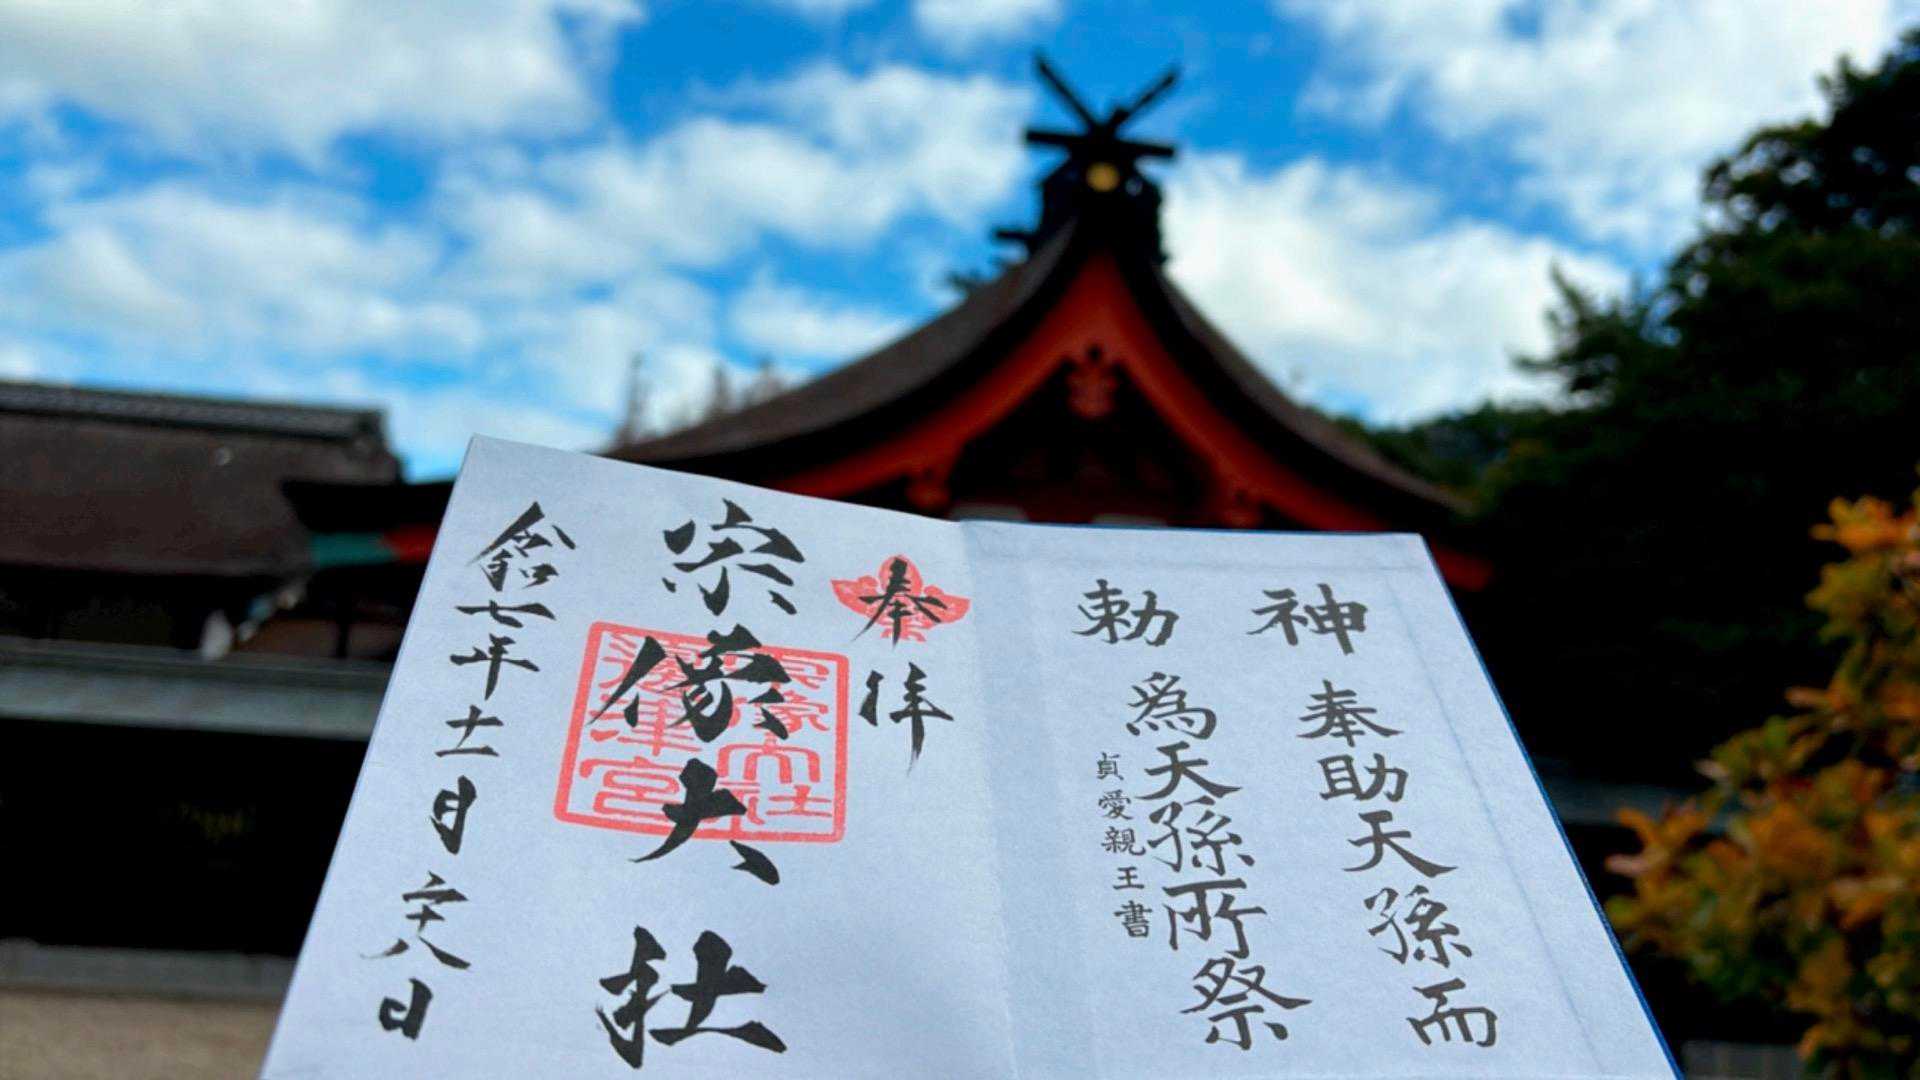 神奉助天孫而
勅為天孫所祭
貞愛親王書
奉拝
宗像大社
宗像大社
邊津宮
令和七年十一月二十八日